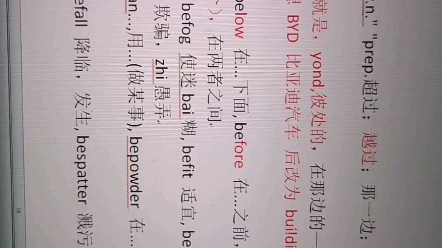 :n." "prep.超过； 越过； 那一边;
就是， yond,彼处的， 在那边的
BYD 比亚迪汽车 后改为 buildi
below 在... 下面, before 在...之前,
), 在两者之间.
befog 使迷 bai 糊, befit 适宜, be
欺骗, zhi 愚弄.
an...,用...(做某事), bepowder 在...
efall 降临， 发生, bespatter 溅污